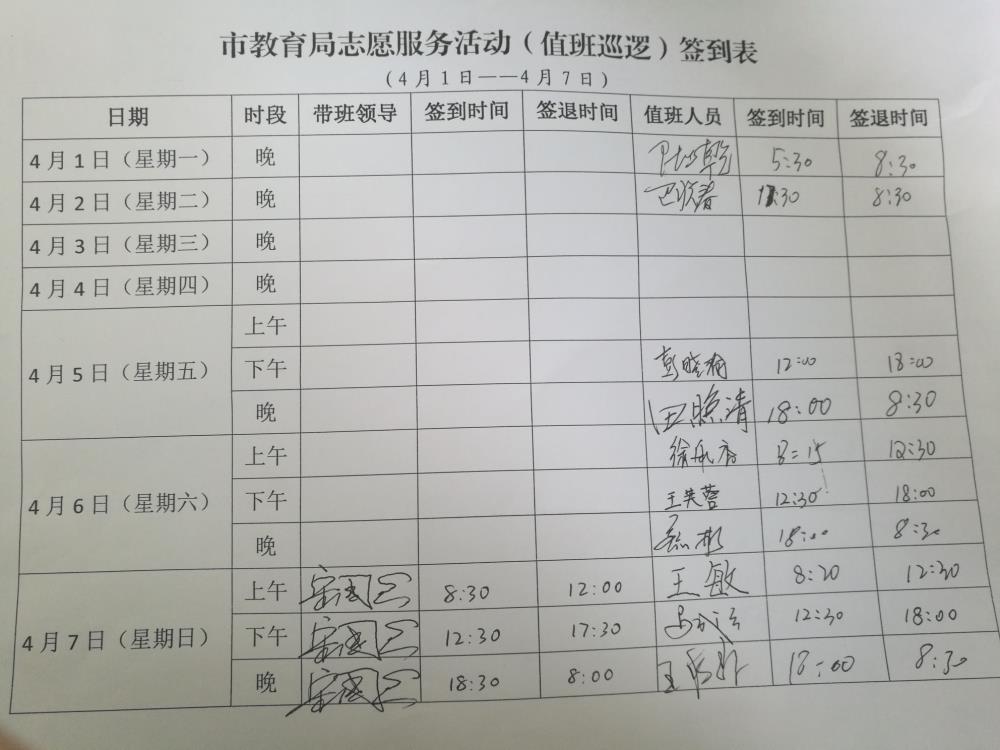 市教育局志愿服务活动（值班巡逻）签到表
（4月1日——4月7日）
日期 时段 带班领导 签到时间 签退时间 值班人员 签到时间 签退时间
4月1日（星期一） 晚 5:30 8:30
4月2日（星期二） 晚 :30 8:30
4月3日（星期三） 晚
4月4日（星期四） 晚
4月5日（星期五） 上午
下午 彭晓梅 12:00 18:00
晚 田照清 18:00 8:30
4月6日（星期六） 上午 8:15 12:30
下午 王芙蓉 12:30 18:00
晚 18:00 8:30
4月7日（星期日） 上午 8:30 12:00 王敏 8:20 12:30
下午 12:30 17:30 12:30 18:00
晚 18:30 8:00 王 18:00 8:30